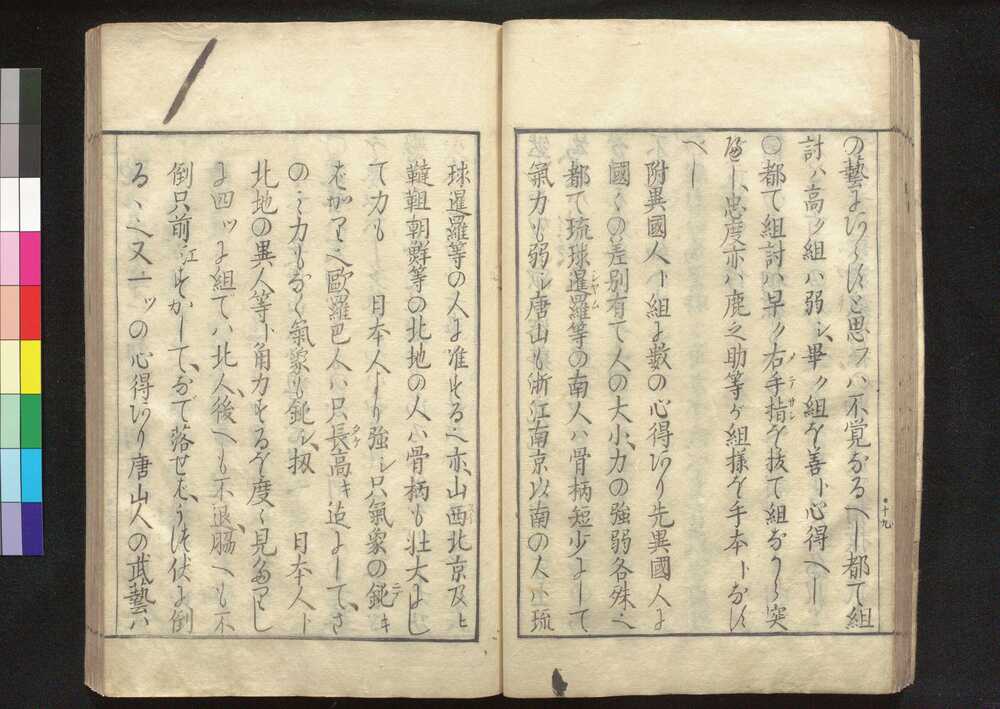 の藝にあらずと思フハ不覚なるべし都て組
討ハ高ク組ハ弱シ、畢ク組を善ト心得べし
〇都て組討ハ早ク右手指を抜て組ながら突
べし、忠度亦ハ鹿之助等が組様を手本トなす
べし
附異國人ト組に数の心得あり先異國人に
國〻の差別有て人の大小、力の強弱各殊へ
都て琉球暹羅等の南人ハ骨柄短少にして
氣力も弱シ唐山も浙江南京以南の人ハ琉
十九
球暹羅等の人に准ずる也亦山西北京及ヒ
韃靼朝鮮等の北地の人ハ骨柄も壮大にし
て力も 日本人より強シ只氣象の鈍キ
ばかり也歐羅巴人ハ只長高キ迄にして、さ
のミ力もなく氣象も鈍シ、扨 日本人ト
北地の異人等ト角力するを度〻見たりし
に四ツに組てハ北人、後へも不退、脇へも不
倒只前江すかして、なで落せば、うつ伏に倒
るゝ也又一ツの心得あり唐山人の武藝ハ